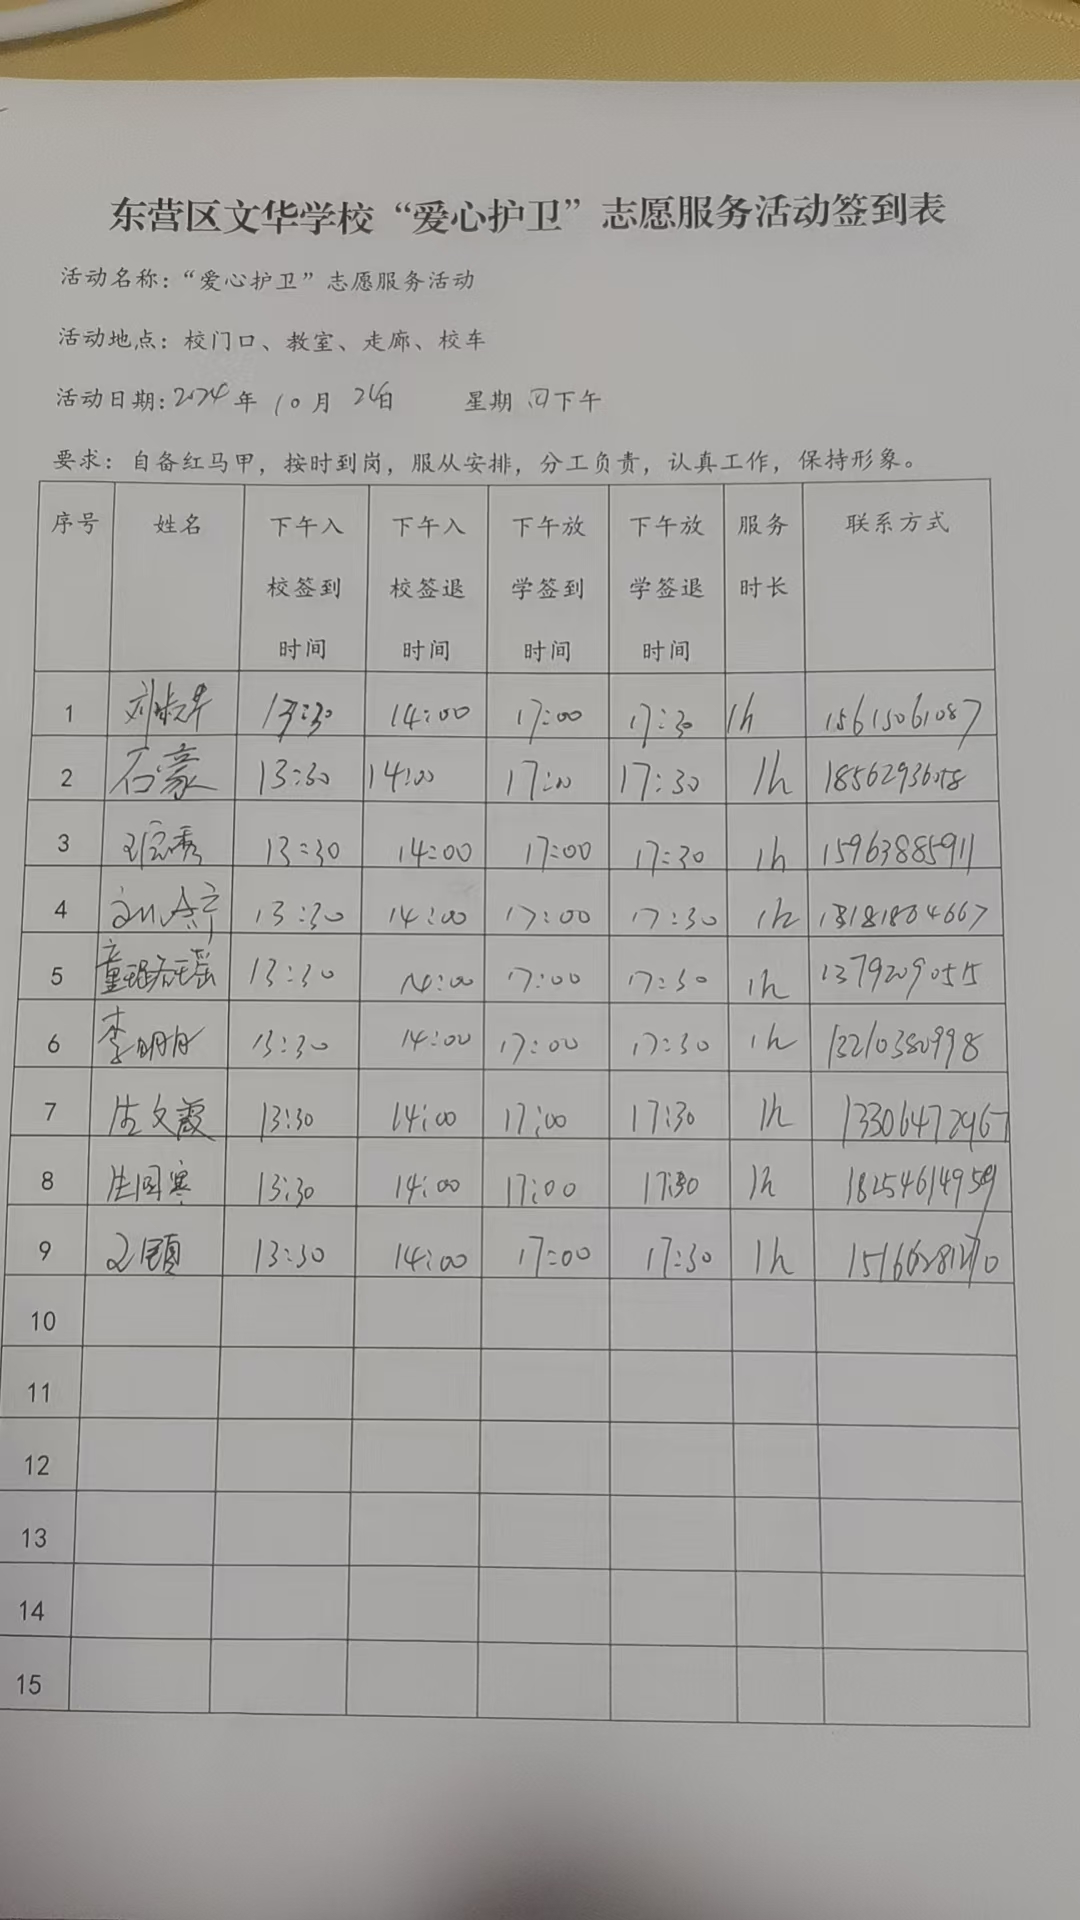 东营区文华学校“爱心护卫”志愿服务活动签到表
活动名称：“爱心护卫”志愿服务活动
活动地点：校门口、教室、走廊、校车
活动日期：2024年 10月 24日 星期 四下午
要求：自备红马甲，按时到岗，服从安排，分工负责，认真工作，保持形象。
序号 姓名 下午入校签到时间 下午入校签退时间 下午放学签到时间 下午放学签退时间 服务时长 联系方式
1 13:30 14:00 17:00 17:30 1h 15615061087
2 石豪 13:30 14:00 17:00 17:30 1h
3 13:30 14:00 17:00 17:30 1h 15963885911
4 13:30 14:00 17:00 17:30 1h 18181804667
5 13:30 14:00 17:00 17:30 1h
6 李明月 13:30 14:00 17:00 17:30 1h 13210380998
7 生文霞 13:30 14:00 17:00 17:30 1h 13306472967
8 生国寒 13:30 14:00 17:00 17:30 1h 18254614959
9 13:30 14:00 17:00 17:30 1h
10
11
12
13
14
15